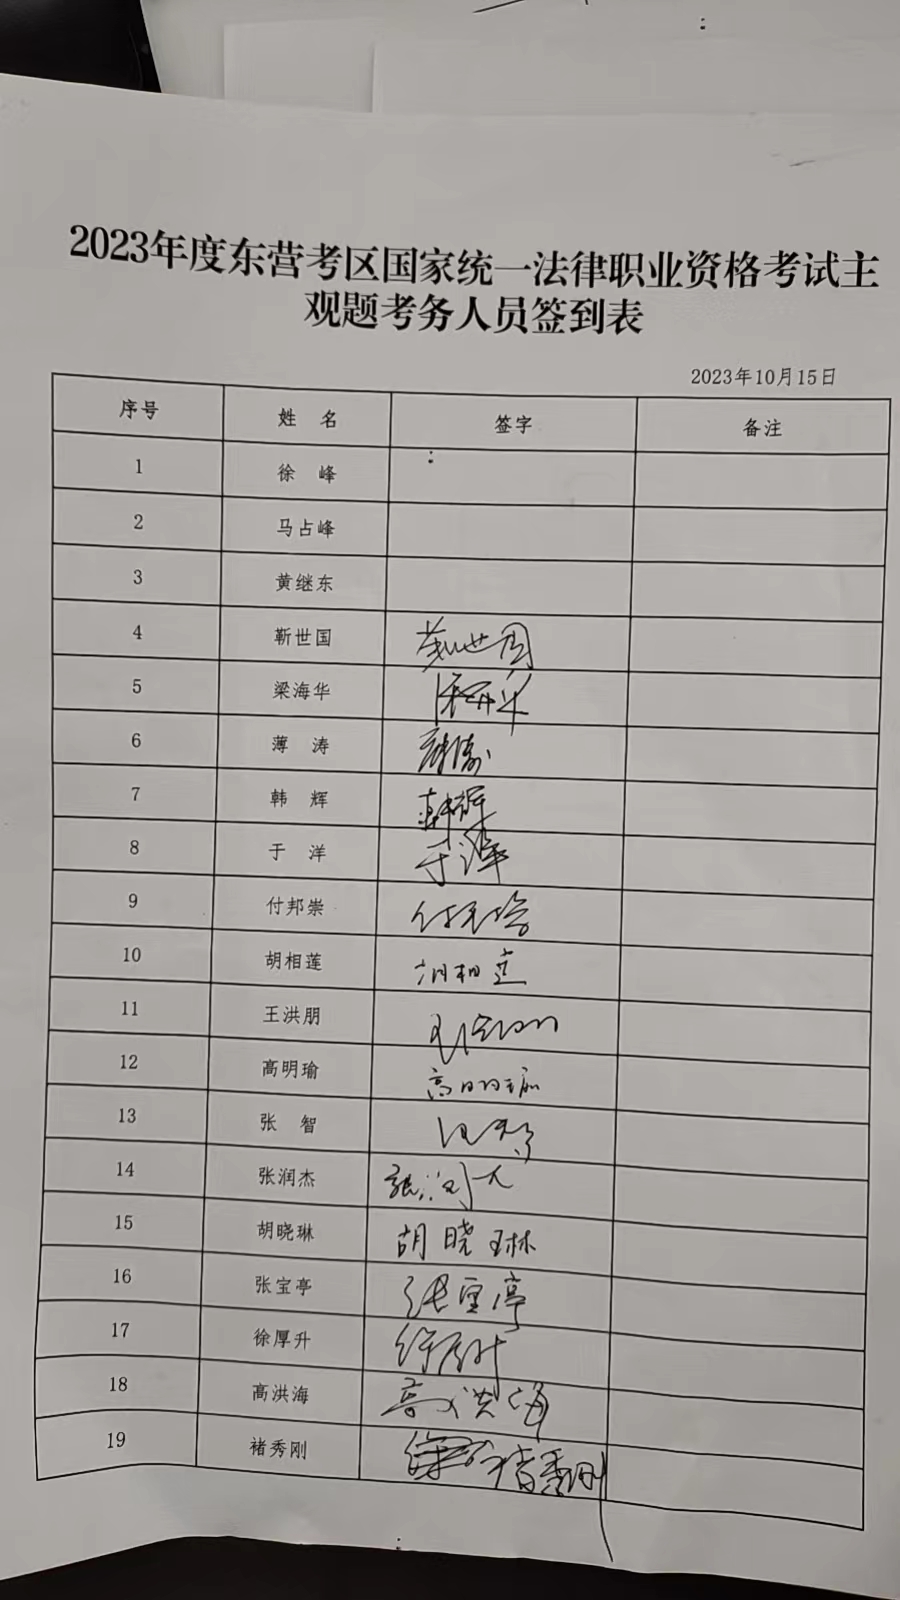 2023年度东营考区国家统一法律职业资格考试主
观题考务人员签到表
2023年10月15日
序号 姓 名 签字 备注
1 徐 峰
2 马占峰
3 黄继东
4 靳世国 靳世国
5 梁海华
6 薄 涛 薄涛
7 韩 辉 韩辉
8 于 洋 于洋
9 付邦崇
10 胡相莲 胡相莲
11 王洪朋 王洪朋
12 高明瑜 高明瑜
13 张 智 张智
14 张润杰 张润杰
15 胡晓琳 胡晓琳
16 张宝亭 张宝亭
17 徐厚升 徐厚升
18 高洪海 高洪海
19 褚秀刚 褚秀刚